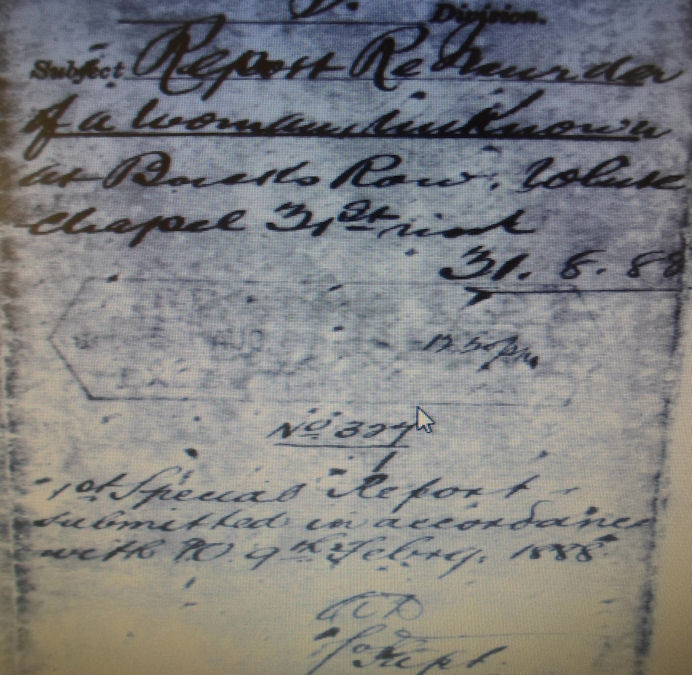 J. Division.
Subject Report Re Murder
of a woman Unknown
at Bucks Row, White
chapel 31st inst
31. 8. 88
12.50 pm
No. 327
1st Special Report
submitted in accordance
with P.O. 9th Febry. 1888
Supt.